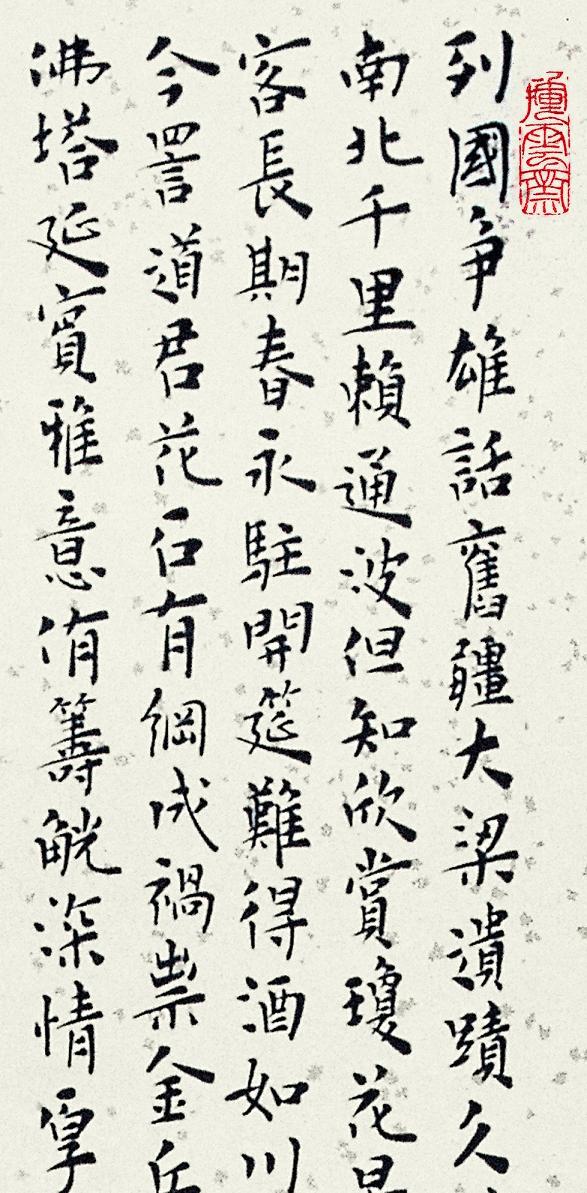 列國爭雄話舊疆大梁遺蹟久
南北千里賴通波但知欣賞瓊花
客長期春永駐開筵難得酒如川
今詈道君花石有綱成禍祟金
佛塔延賓雅意侑籌觥深情厚